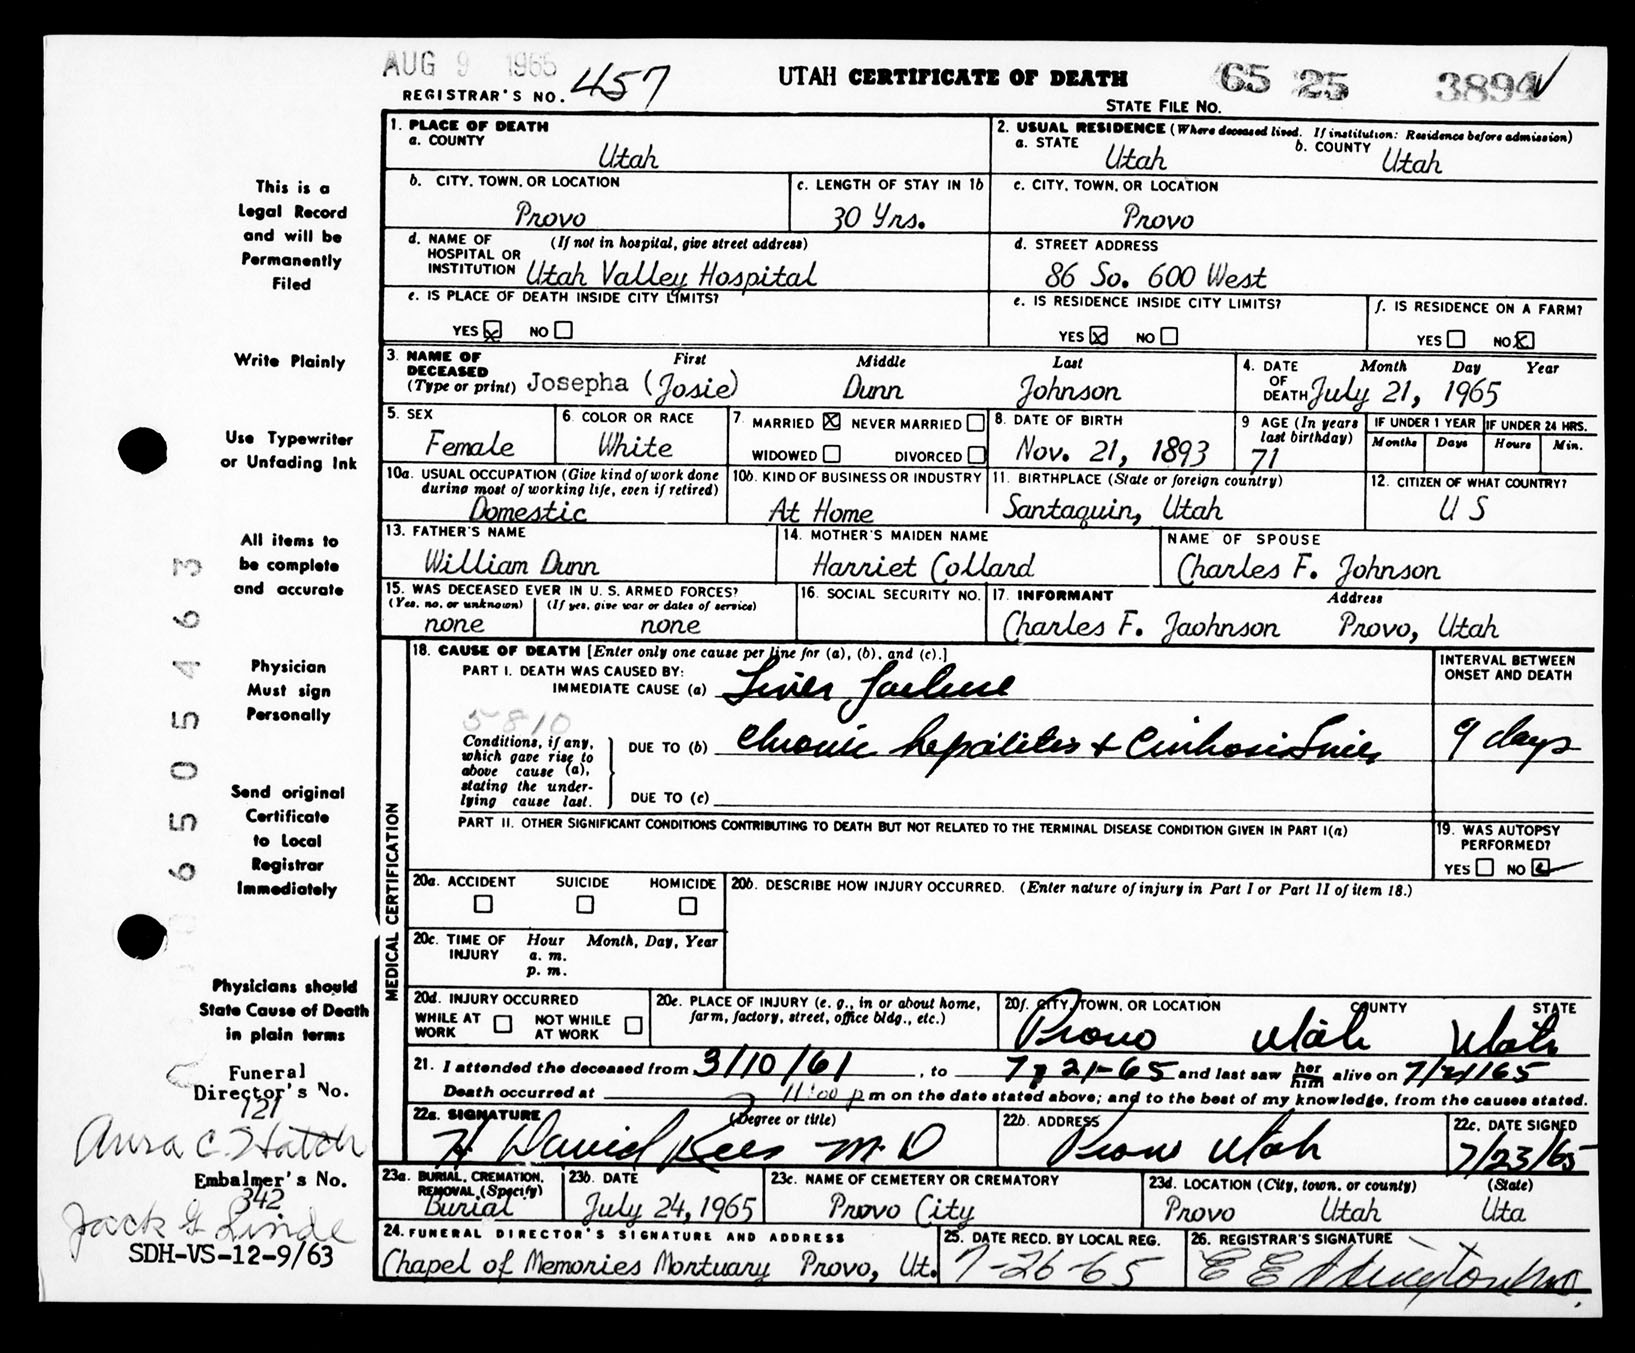 AUG 9 1965
REGISTRAR'S NO. 457
UTAH CERTIFICATE OF DEATH
65 25 3894
STATE FILE NO.
This is a
Legal Record
and will be
Permanently
Filed
Write Plainly
Use Typewriter
or Unfading Ink
All items to
be complete
and accurate
Physician
Must sign
Personally
Send original
Certificate
to Local
Registrar
Immediately
Physicians should
State Cause of Death
in plain terms
Funeral
Director's No.
121
C. Hatch
Embalmer's No.
342
Jack G Linde
SDH-VS-12-9/63
6505463
1. PLACE OF DEATH
a. COUNTY
Utah
2. USUAL RESIDENCE (Where deceased lived. If institution: Residence before admission)
a. STATE Utah b. COUNTY Utah
b. CITY, TOWN, OR LOCATION
Provo
c. LENGTH OF STAY IN 1b
30 Yrs.
c. CITY, TOWN, OR LOCATION
Provo
d. NAME OF (If not in hospital, give street address)
HOSPITAL OR
INSTITUTION Utah Valley Hospital
d. STREET ADDRESS
86 So. 600 West
e. IS PLACE OF DEATH INSIDE CITY LIMITS?
YES NO
e. IS RESIDENCE INSIDE CITY LIMITS?
YES NO
f. IS RESIDENCE ON A FARM?
YES NO
3. NAME OF First Middle Last
DECEASED
(Type or print) Josepha (Josie) Dunn Johnson
4. DATE Month Day Year
OF
DEATH July 21, 1965
5. SEX
Female
6. COLOR OR RACE
White
7. MARRIED NEVER MARRIED
WIDOWED DIVORCED
8. DATE OF BIRTH
Nov. 21, 1893
9 AGE (In years
last birthday)
71
IF UNDER 1 YEAR IF UNDER 24 HRS.
Months Days Hours Min.
10a. USUAL OCCUPATION (Give kind of work done
during most of working life, even if retired)
Domestic
10b. KIND OF BUSINESS OR INDUSTRY
At Home
11. BIRTHPLACE (State or foreign country)
Santaquin, Utah
12. CITIZEN OF WHAT COUNTRY?
U S
13. FATHER'S NAME
William Dunn
14. MOTHER'S MAIDEN NAME
Harriet Collard
NAME OF SPOUSE
Charles F. Johnson
15. WAS DECEASED EVER IN U. S. ARMED FORCES?
(Yes, no, or unknown) (If yes, give war or dates of service)
none none
16. SOCIAL SECURITY NO.
17. INFORMANT Address
Charles F. Jaohnson Provo, Utah
MEDICAL CERTIFICATION
18. CAUSE OF DEATH [Enter only one cause per line for (a), (b), and (c).]
PART I. DEATH WAS CAUSED BY:
IMMEDIATE CAUSE (a) Liver failure
INTERVAL BETWEEN
ONSET AND DEATH
5810
Conditions, if any,
which gave rise to
above cause (a),
stating the under-
lying cause last.
DUE TO (b) Chronic hepatitis + Cirrhosis Liver
9 days
DUE TO (c)
PART II. OTHER SIGNIFICANT CONDITIONS CONTRIBUTING TO DEATH BUT NOT RELATED TO THE TERMINAL DISEASE CONDITION GIVEN IN PART I(a)
19. WAS AUTOPSY
PERFORMED?
YES NO
20a. ACCIDENT SUICIDE HOMICIDE
20b. DESCRIBE HOW INJURY OCCURRED. (Enter nature of injury in Part I or Part II of item 18.)
20c. TIME OF Hour Month, Day, Year
INJURY a. m.
p. m.
20d. INJURY OCCURRED
WHILE AT NOT WHILE
WORK AT WORK
20e. PLACE OF INJURY (e. g., in or about home,
farm, factory, street, office bldg., etc.)
20f. CITY, TOWN, OR LOCATION COUNTY STATE
Provo Utah Utah
21. I attended the deceased from 3/10/61, to 7-21-65 and last saw her him alive on 7/21/65
Death occurred at 11:00 p m on the date stated above; and to the best of my knowledge, from the causes stated.
22a. SIGNATURE (Degree or title)
H David Rees M.D
22b. ADDRESS
Provo Utah
22c. DATE SIGNED
7/23/65
23a. BURIAL, CREMATION,
REMOVAL (Specify)
Burial
23b. DATE
July 24, 1965
23c. NAME OF CEMETERY OR CREMATORY
Provo City
23d. LOCATION (City, town, or county) (State)
Provo Utah Uta
24. FUNERAL DIRECTOR'S SIGNATURE AND ADDRESS
Chapel of Memories Mortuary Provo, Ut.
25. DATE RECD. BY LOCAL REG.
7-26-65
26. REGISTRAR'S SIGNATURE
E E